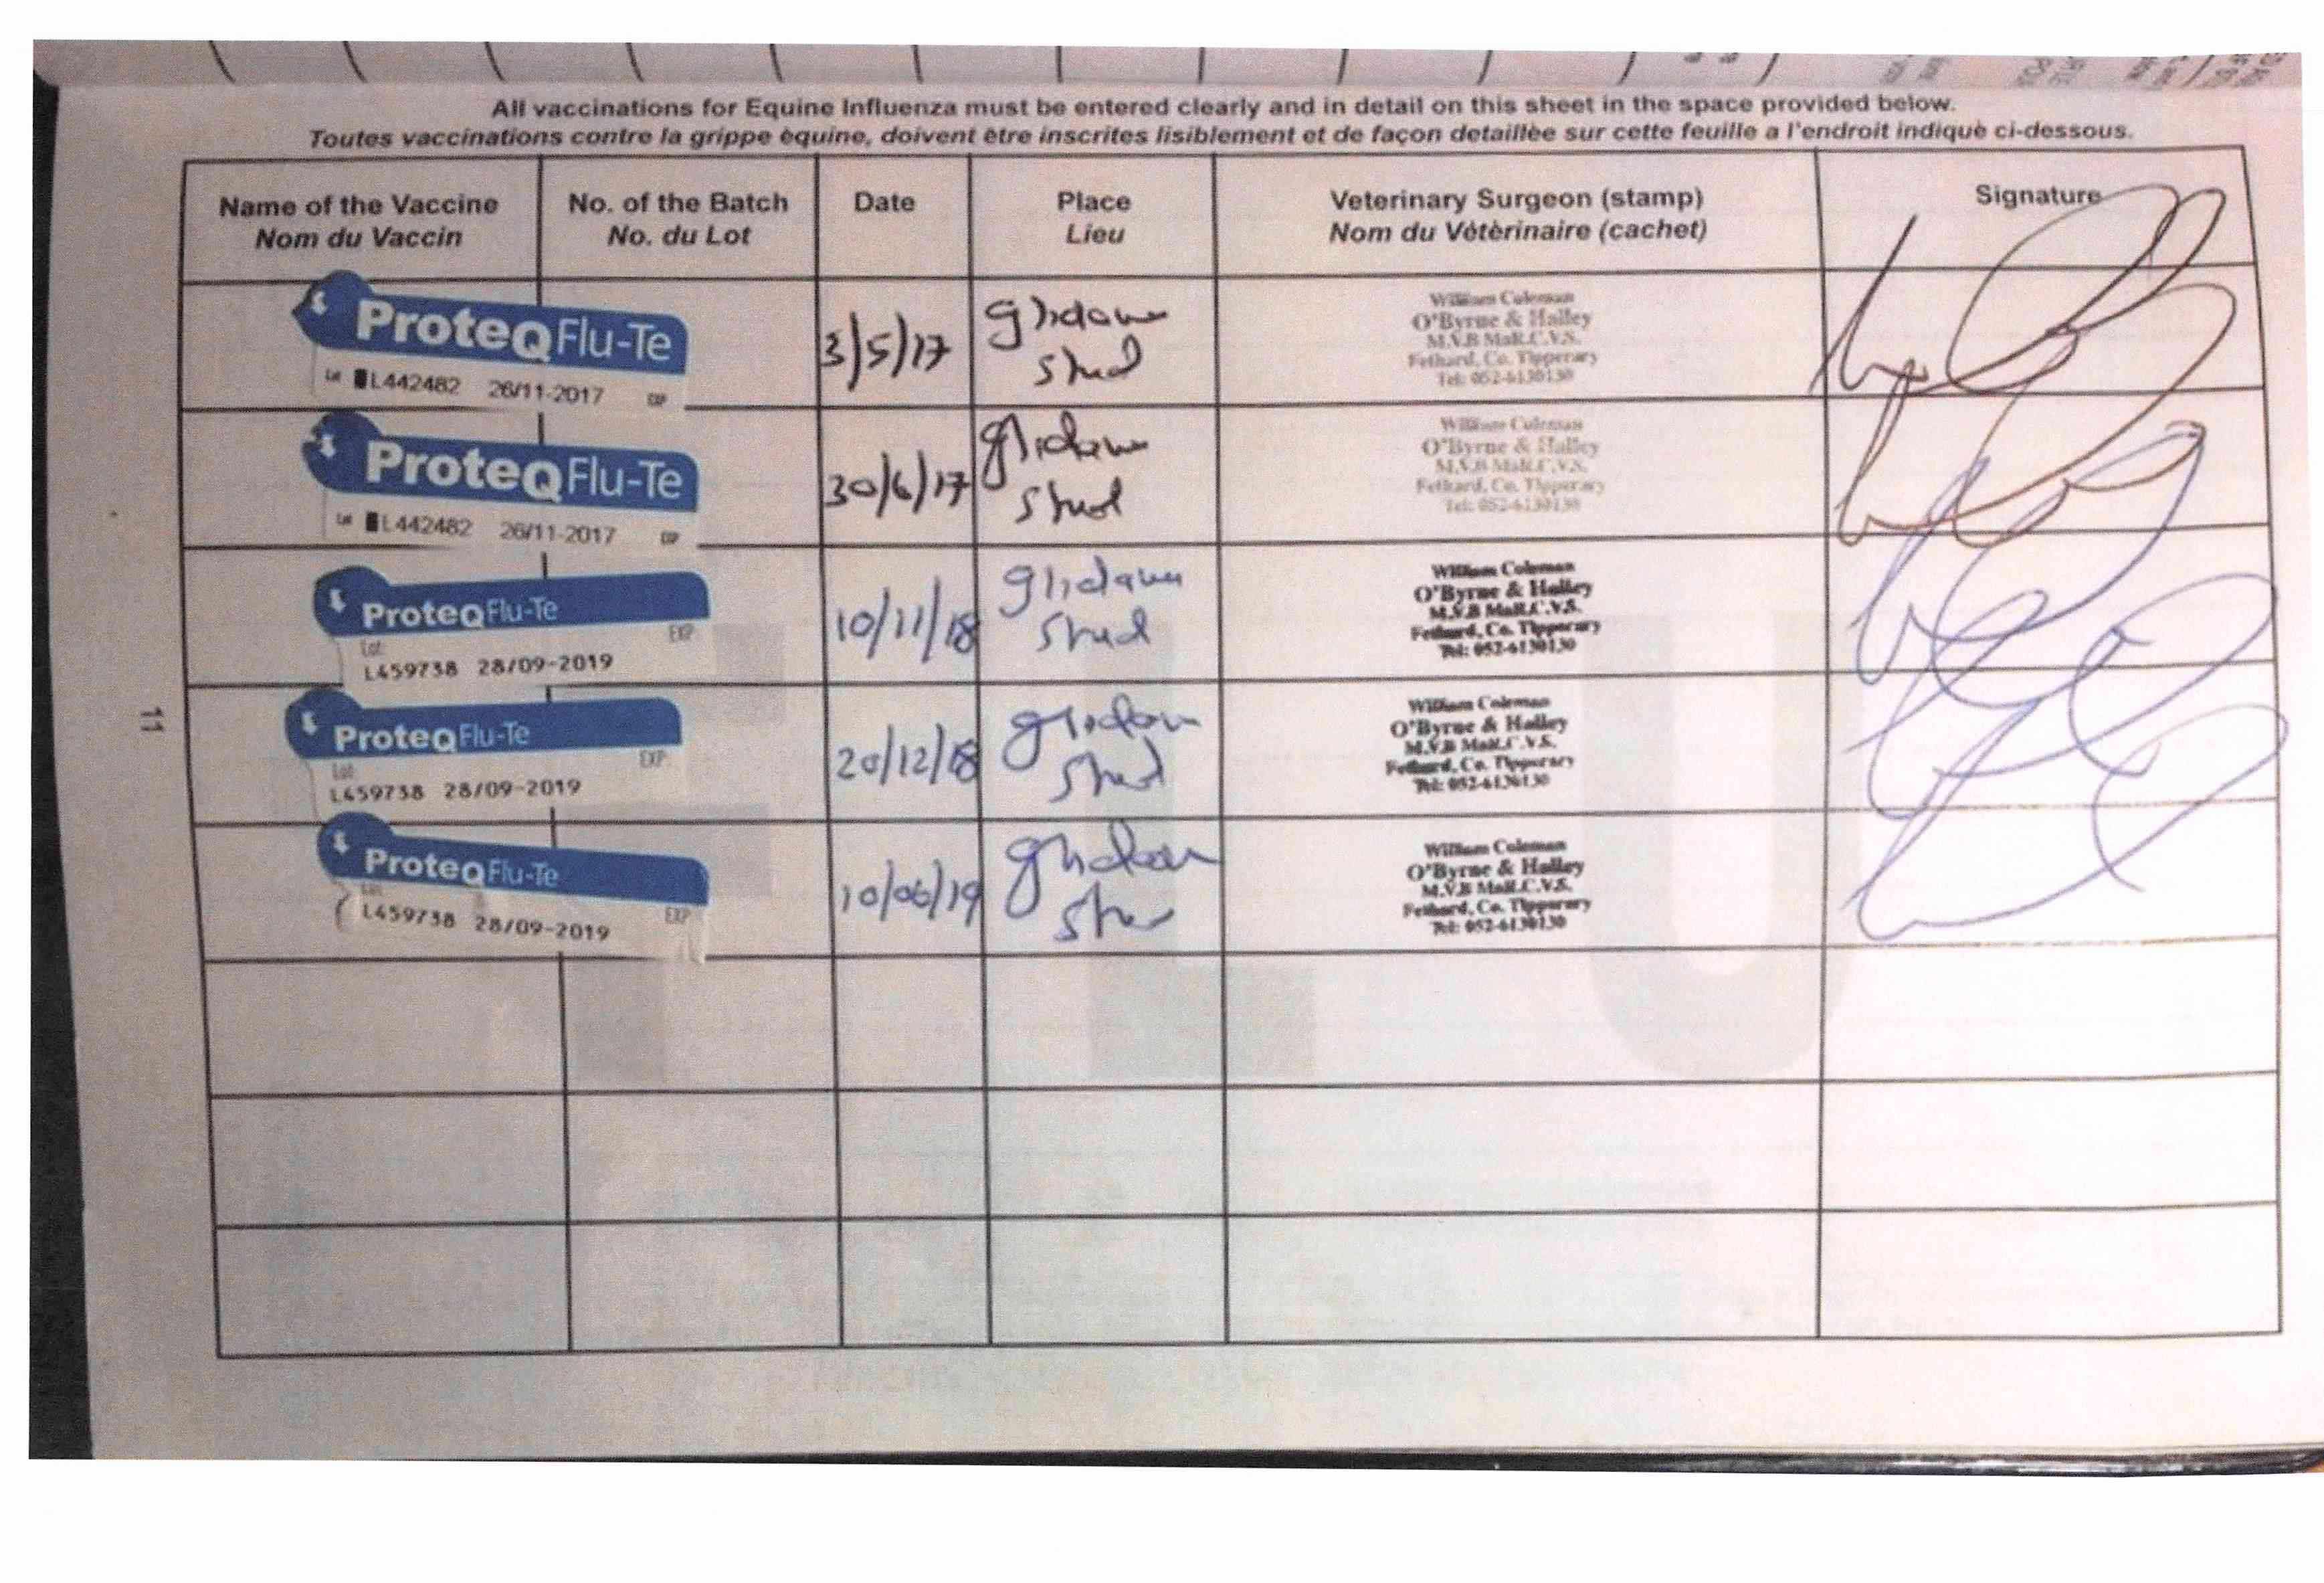 All vaccinations for Equine Influenza must be entered clearly and in detail on this sheet in the space provided below.
Toutes vaccinations contre la grippe èquine, doivent ètre inscrites lisiblement et de façon detaillèe sur cette feuille a l'endroit indiquè ci-dessous.
Name of the Vaccine No. of the Batch Date Place Veterinary Surgeon (stamp) Signature
Nom du Vaccin No. du Lot Lieu Nom du Vètèrinaire (cachet)
ProteqFlu-Te
Lot L442482 26/11-2017 EXP
3/5/17
Stud
William Coleman
O'Byrne & Halley
M.V.B MaR.C.V.S.
Fethard, Co. Tipperary
Tel: 052-6130130
ProteqFlu-Te
Lot L442482 26/11-2017 EXP
30/6/17
Stud
William Coleman
O'Byrne & Halley
M.V.B MaR.C.V.S.
Fethard, Co. Tipperary
Tel: 052-6130130
ProteqFlu-Te
EXP
Lot:
L459738 28/09-2019
10/11/18
Stud
William Coleman
O'Byrne & Halley
M.V.B MaR.C.V.S.
Fethard, Co. Tipperary
Tel: 052-6130130
ProteqFlu-Te
EXP
Lot:
L459738 28/09-2019
20/12/18
Stud
William Coleman
O'Byrne & Halley
M.V.B MaR.C.V.S.
Fethard, Co. Tipperary
Tel: 052-6130130
ProteqFlu-Te
Lot:
EXP
L459738 28/09-2019
10/06/19
William Coleman
O'Byrne & Halley
M.V.B MaR.C.V.S.
Fethard, Co. Tipperary
Tel: 052-6130130
11